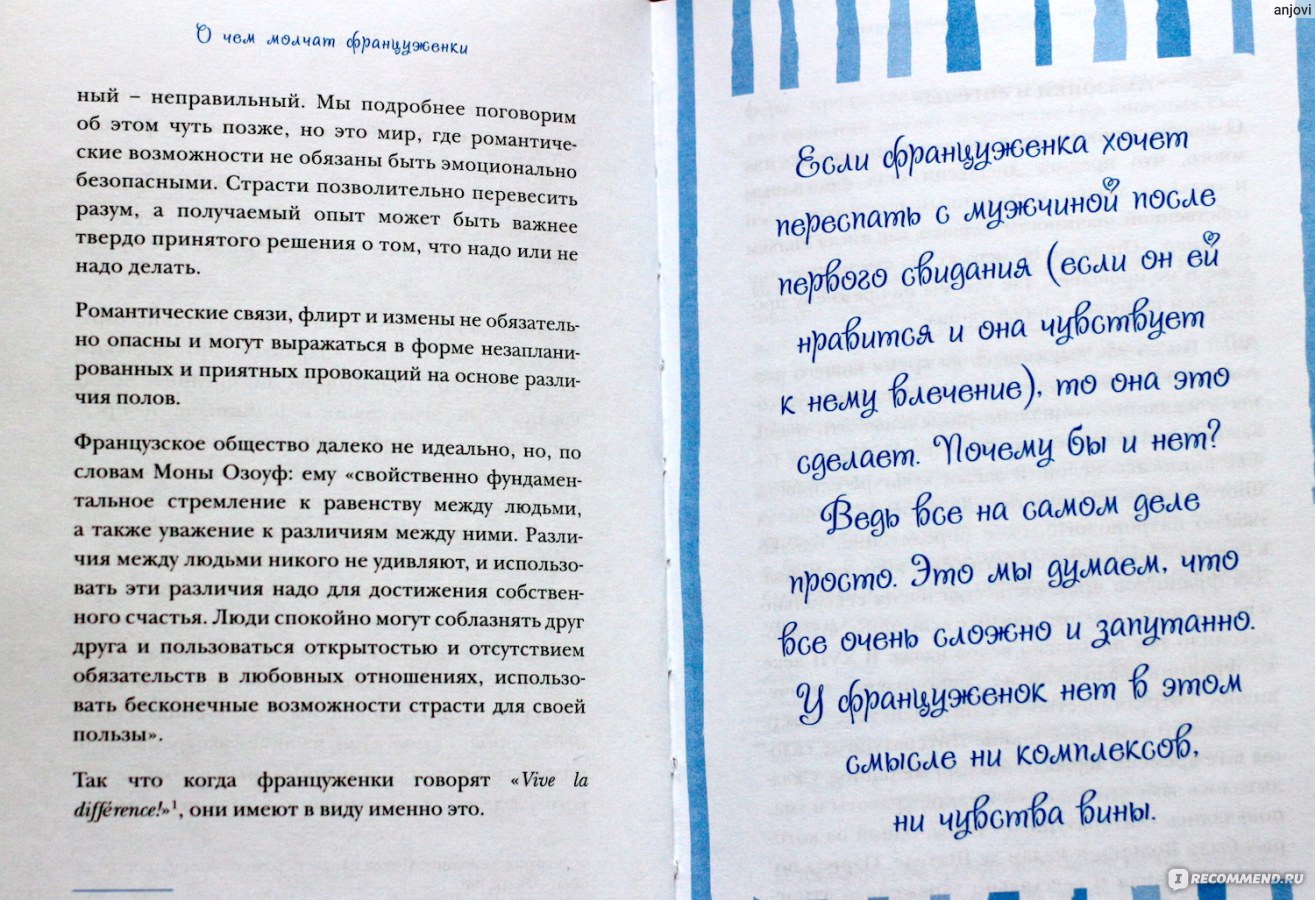 О чем молчат француженки
ный – неправильный. Мы подробнее поговорим
об этом чуть позже, но это мир, где романтиче-
ские возможности не обязаны быть эмоционально
безопасными. Страсти позволительно перевесить
разум, а получаемый опыт может быть важнее
твердо принятого решения о том, что надо или не
надо делать.
Романтические связи, флирт и измены не обязатель-
но опасны и могут выражаться в форме незаплани-
рованных и приятных провокаций на основе разли-
чия полов.
Французское общество далеко не идеально, но, по
словам Моны Озоуф: ему «свойственно фундамен-
тальное стремление к равенству между людьми,
а также уважение к различиям между ними. Разли-
чия между людьми никого не удивляют, и использо-
вать эти различия надо для достижения собствен-
ного счастья. Люди спокойно могут соблазнять друг
друга и пользоваться открытостью и отсутствием
обязательств в любовных отношениях, использо-
вать бесконечные возможности страсти для своей
пользы».
Так что когда француженки говорят «Vive la
différence!»¹, они имеют в виду именно это.
anjovi
Если француженка хочет
переспать с мужчиной после
первого свидания (если он ей
нравится и она чувствует
к нему влечение), то она это
сделает. Почему бы и нет?
Ведь все на самом деле
просто. Это мы думаем, что
все очень сложно и запутанно.
У француженок нет в этом
смысле ни комплексов,
ни чувства вины.
I RECOMMEND.RU